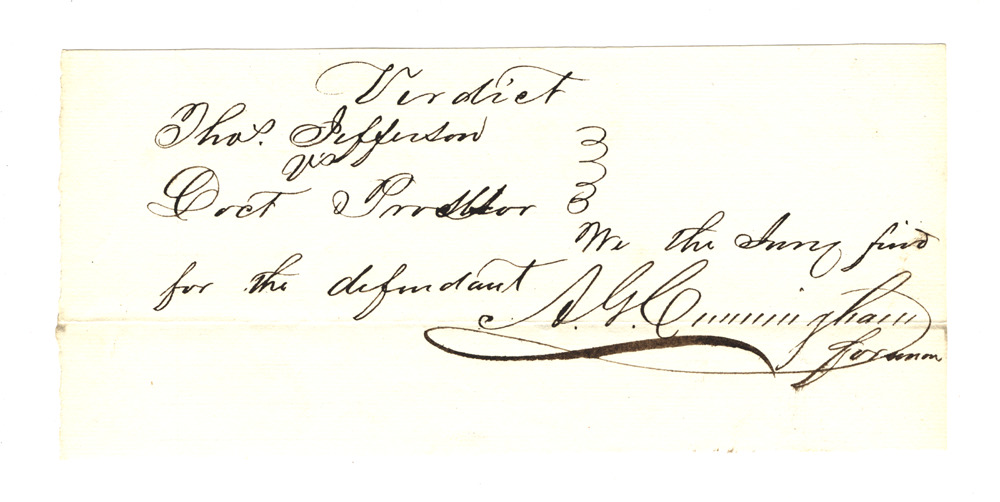 Verdict
Thos. Jefferson
vs
Doct Procktor
We the Jury find
for the defendant
A. G. Cunningham
foreman